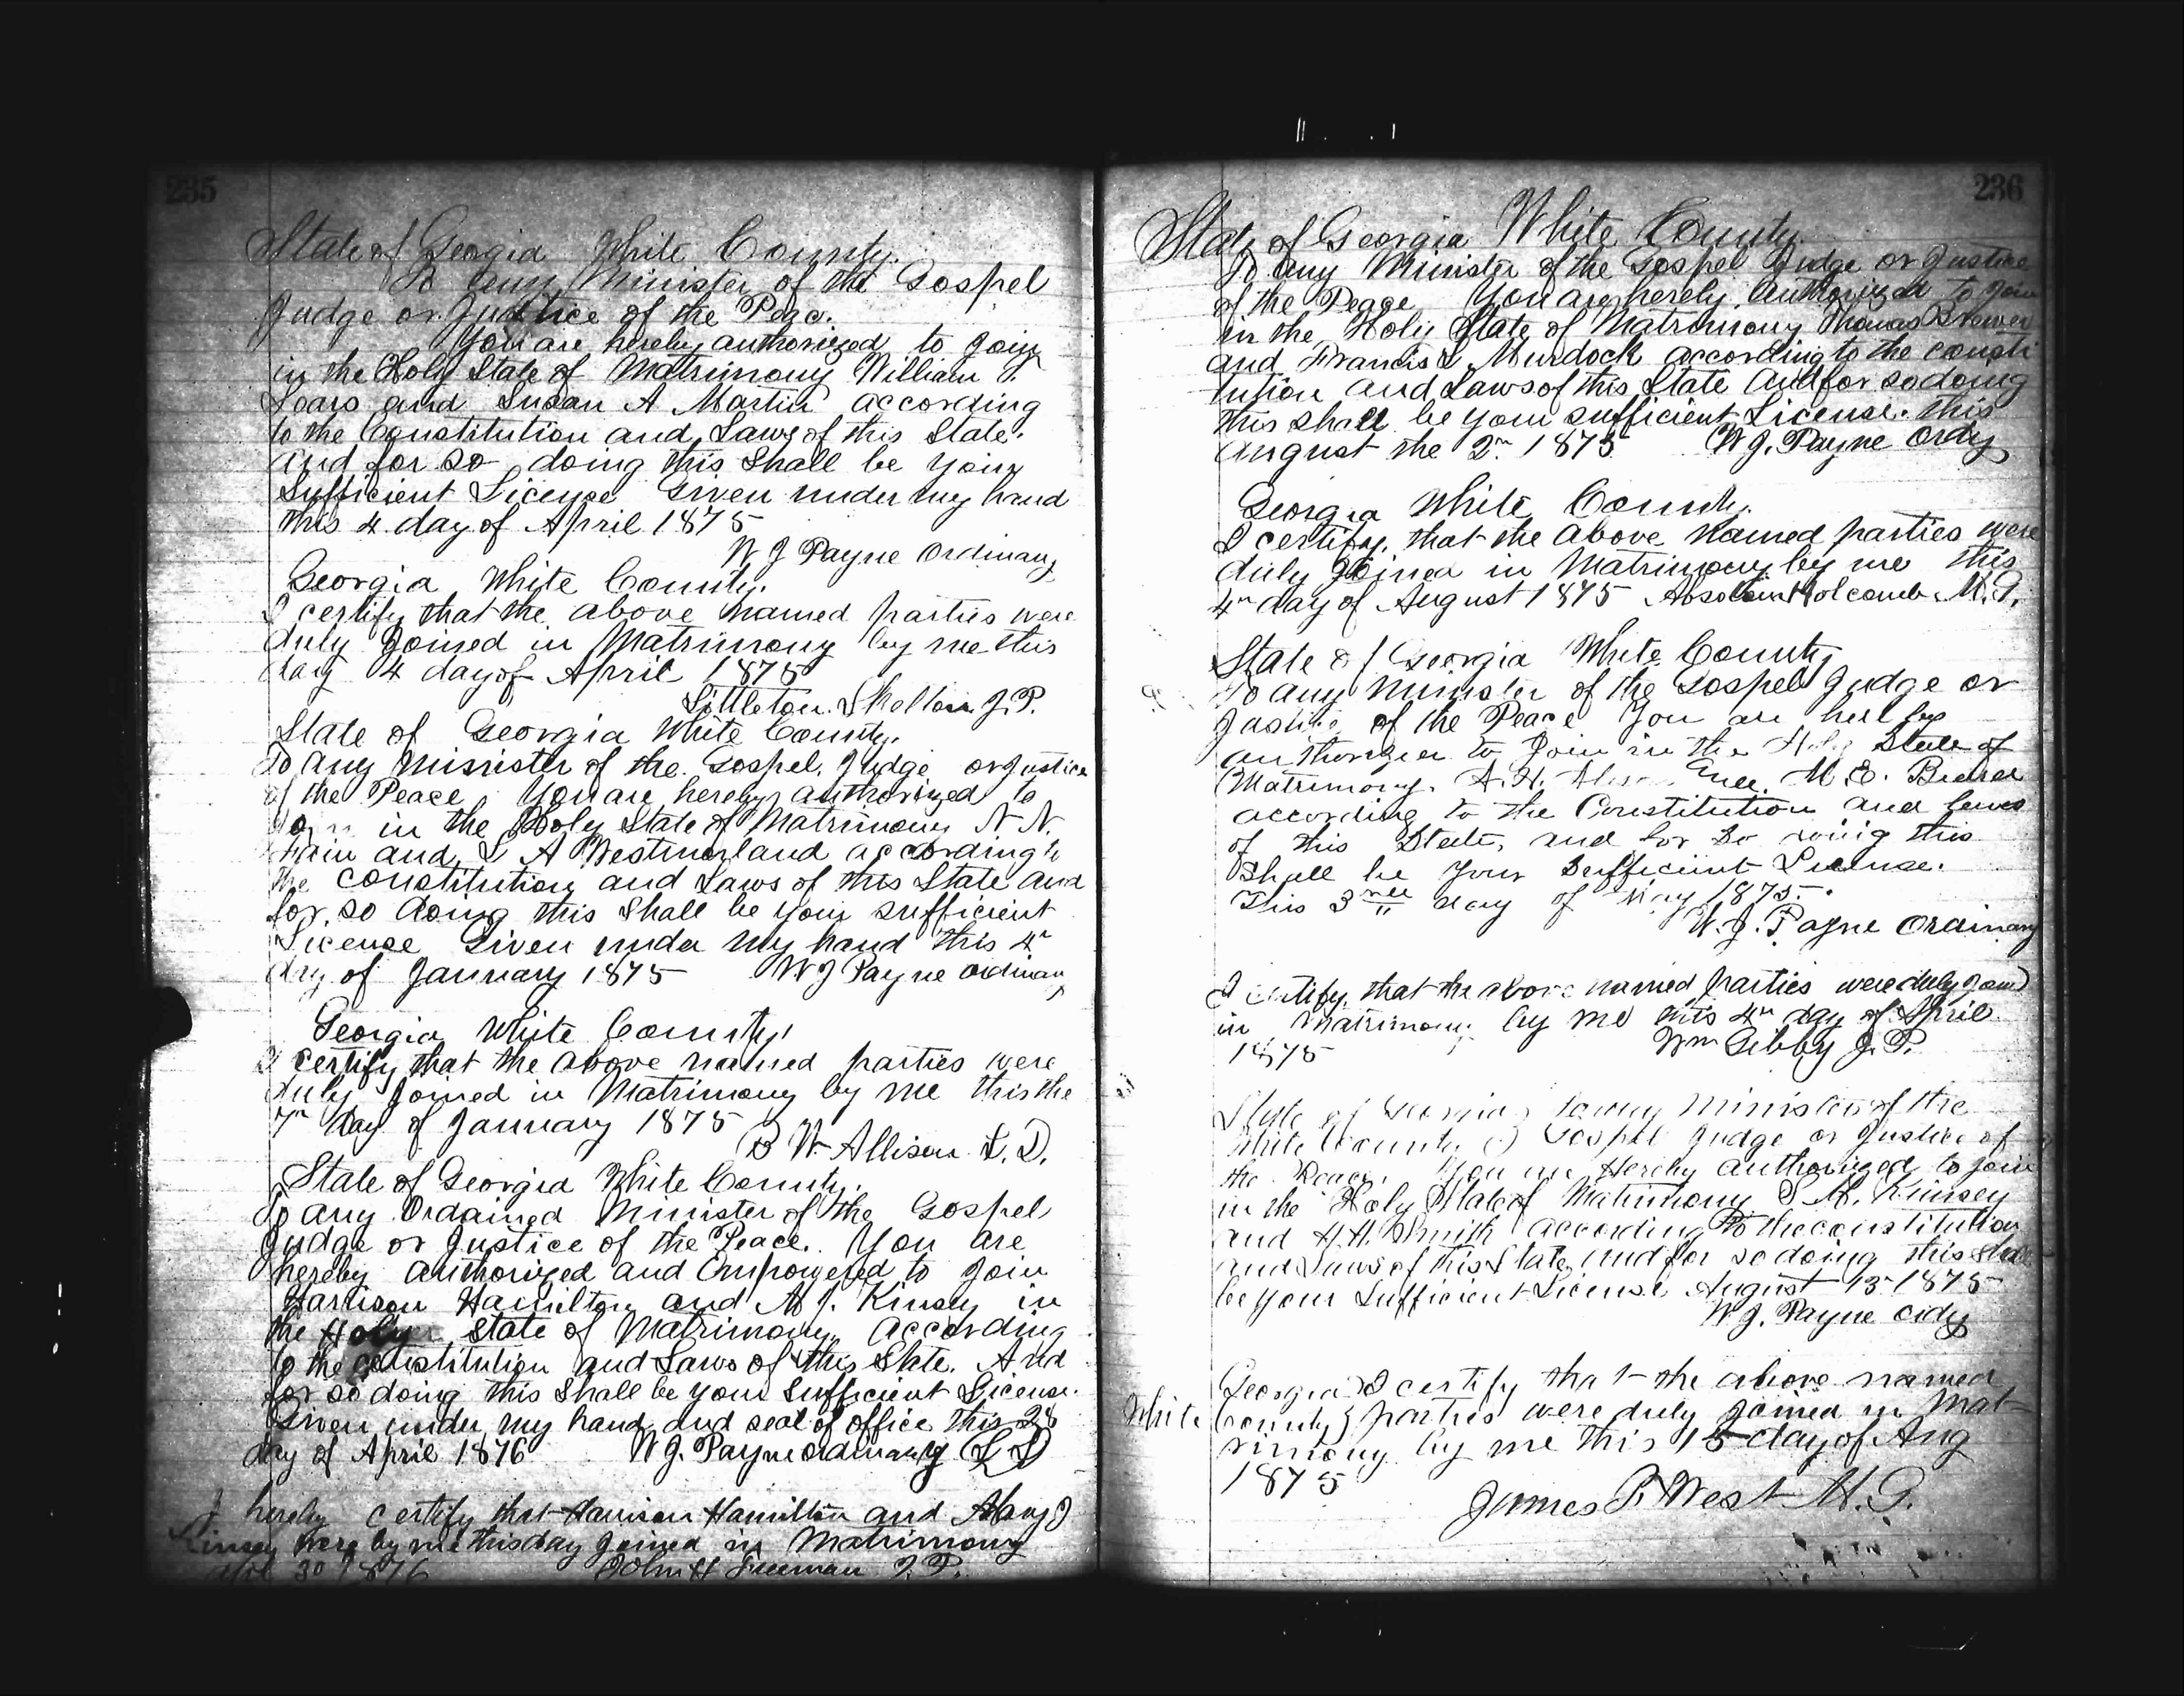 235
State of Georgia White County.
To any Minister of the Gospel
Judge or Justice of the Peac.
You are hereby authorized to join
in the Holy State of Matrimony William T.
Sears and Susan A Martin according
to the Constitution and Laws of this State.
And for so doing this Shall be your
Sufficient License Given under my hand
this 4 day of April 1875
W J Payne Ordinary
Georgia White County.
I certify that the above named parties were
duly Joined in Matrimony by me this
day 4 day of April 1875
Littleton Shelton J.P.
State of Georgia White County.
To any Minister of the Gospel, Judge or Justice
of the Peace You are hereby authorized to
Join in the Holy State of Matrimony N N.
and L A Westmorland according to
the constitution and Laws of this State and
for so doing this Shall be your sufficient
License Given under my hand this 4th
day of January 1875 W J Payne ordinary
Georgia White County
I certify that the above named parties were
duly Joined in Matrimony by me this the
7th day of January 1875
B W Allison L.D.
State of Georgia White County.
To any Ordained Minister of the Gospel
Judge or Justice of the Peace. You are
hereby authorized and Empowered to join
Harrison Hamilton and M J. Kinsey in
the Holy State of Matrimony According
to the constitution and Laws of this State. And
for so doing this Shall be your Sufficient License.
Given under my hand and seal of office this 28
day of April 1876 W J. Payne ordinary
I hereby certify that Harrison Hamilton and Mary J
Kinsey were by me this day joined in Matrimony
Apr 30 1876 John H Freeman J.P.
236
State of Georgia White County
To any Minister of the Gospel Judge or Justice
of the Peace You are hereby Authorized to join
in the Holy State of Matrimony Thomas Brewer
and Francis L Murdock according to the consti
tution and Laws of this State And for so doing
this shall be your sufficient License. this
August the 2nd 1875 W J. Payne Ordy
Georgia White County.
I certify that the above named parties were
duly Joined in Matrimony by me this
4th day of August 1875 Absolom Holcomb M.G.
State of Georgia White County
To any Minister of the Gospel Judge or
Justice of the Peace You are hereby
authorized to Join in the Holy State of
Matrimony. A. H. and M. E.
according to the Constitution and laws
of this State, and for So doing this
Shall be Your Sufficient License.
This 3rd day of May 1875.
W. J. Payne Ordinary
I certify that the above named parties were duly joind
in Matrimony by me this 4th day of April
1875 Wm Libby J.P.
State of Georgia To any Minister of the
White County Gospel Judge or Justice of
the Peace. You are Hereby authorized to join
in the Holy State of Matrimony S M. Kinsey
and H. H. Smith according to the constitution
and Laws of this State, And for so doing this shall
be your Sufficient License August 13 1875
W J. Payne ordy
Georgia I certify that the above named
White County parties were duly joined in Mat-
rimony by me this 15 day of Aug
1875
James P. West M.G.